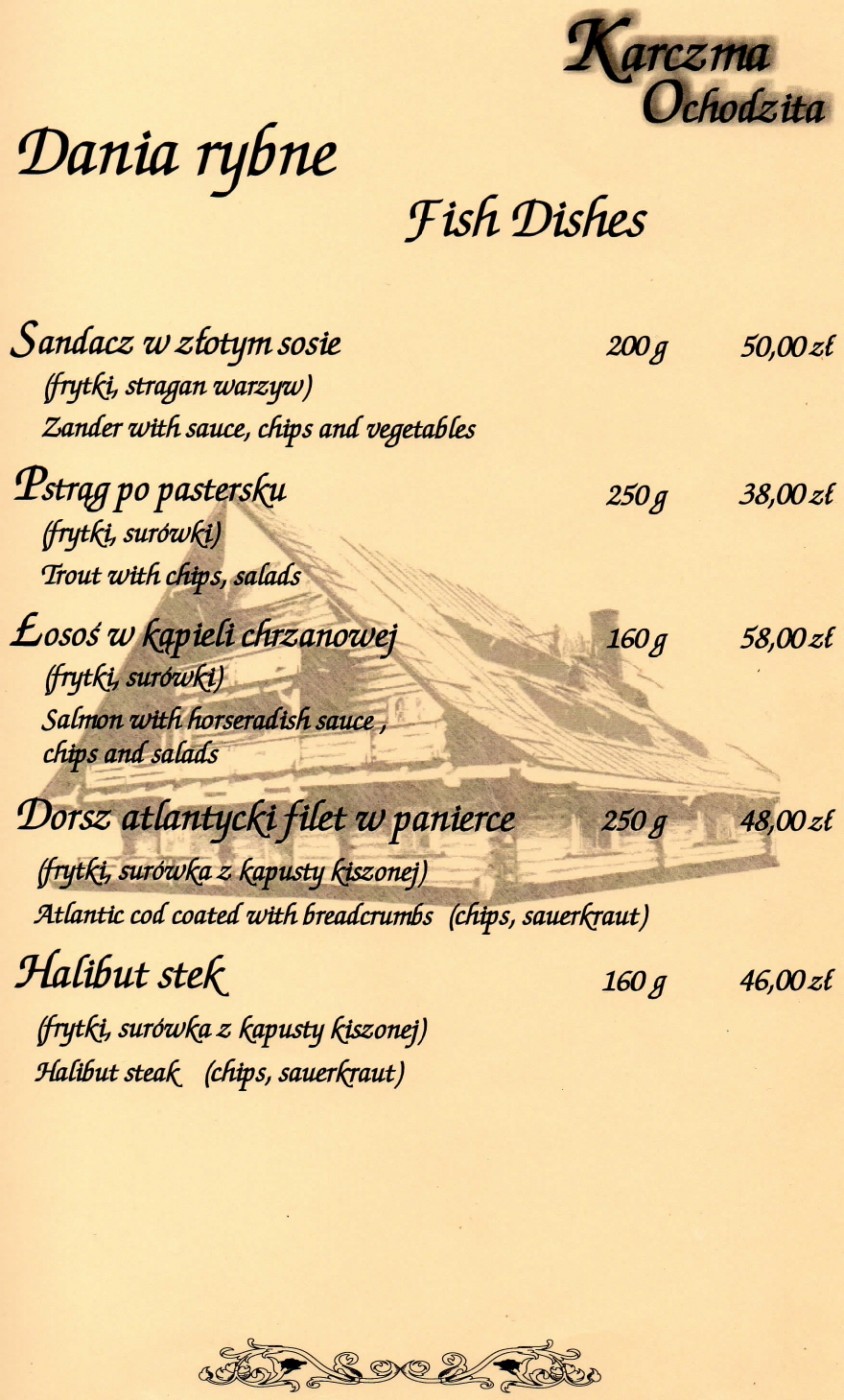 Karczma
Ochodzita
Dania rybne
Fish Dishes
Sandacz w złotym sosie 200 g 50,00 zł
(frytki, stragan warzyw)
Zander with sauce, chips and vegetables
Pstrąg po pastersku 250 g 38,00 zł
(frytki, surówki)
Trout with chips, salads
Łosoś w kąpieli chrzanowej 160 g 58,00 zł
(frytki, surówki)
Salmon with horseradish sauce ,
chips and salads
Dorsz atlantycki filet w panierce 250 g 48,00 zł
(frytki, surówka z kapusty kiszonej)
Atlantic cod coated with breadcrumbs (chips, sauerkraut)
Halibut stek 160 g 46,00 zł
(frytki, surówka z kapusty kiszonej)
Halibut steak (chips, sauerkraut)